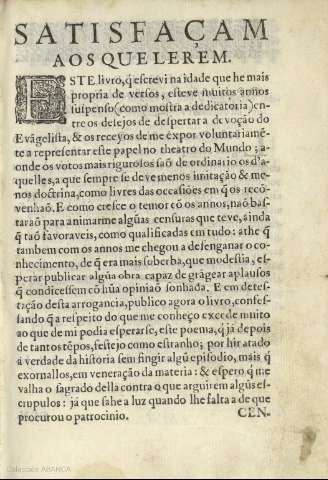 SATISFAÇAM
AOS QUE LEREM.
ESTE livro, q̃ escrevi na idade que he mais
propria de versos, esteve muitos annos
suspenso (como mostra a dedicatoria) en-
tre os desejos de despertar a devoção do
Evãgelista, & os receyos de me expor voluntariamē-
te a representar este papel no theatro do Mundo; a-
onde os votos mais rigurosos saõ de ordinario os d'a-
quelles, a que sempre se deve menos imitação & me-
nos doctrina, como livres das occasiões em q̃ os recõ-
venhaõ. E como cresce o temor cõ os annos, naõ bas-
taraõ para animarme algũas censuras que teve, ainda
q̃ taõ favoraveis, como qualificadas em tudo: athe q̃
tambem com os annos me chegou a desenganar o co-
nhecimento, de q̃ era mais suberba, que modestia, es-
perar publicar algũa obra capaz de grãgear aplausos
q̃ condicessem cõ hũa opiniaõ sonhada. E em detes-
tação desta arrogancia, publico agora o livro, confes-
sando q̃ a respeito do que me conheço excede muito
ao que de mi podia esperarse, este poema, q̃ ja depois
de tantos tẽpos, festejo como estranho; por hir atado
á verdade da historia sem fingir algũ episodio, mais q̃
exornallos, em veneração da materia: & espero q̃ me
valha o sagrado della contra o que arguirem algũs es-
crupulos: já que sahe a luz quando lhe falta a de que
procurou o patrocinio. CEN-
Colección ABANCA